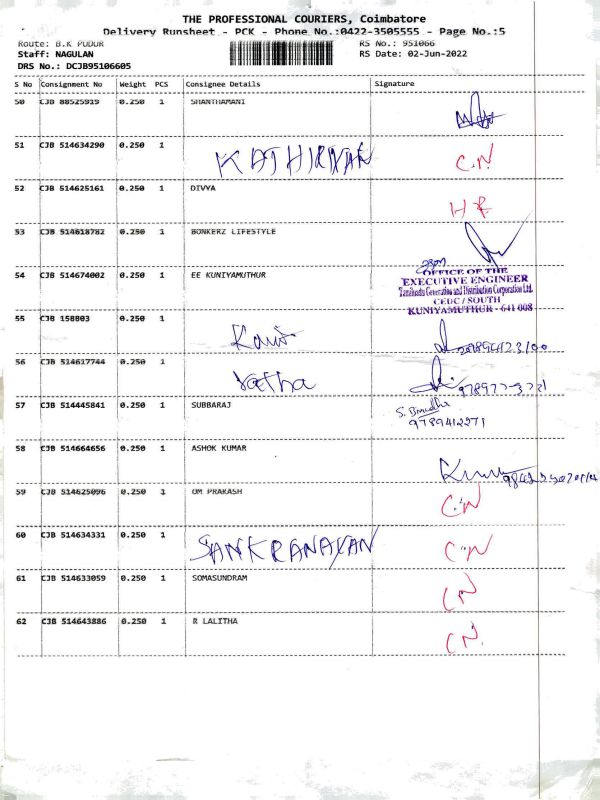 THE PROFESSIONAL COURIERS, Coimbatore
Delivery Runsheet - PCK - Phone No.:0422-3505555 - Page No.:5
Route: B.K PUDUR
RS No.: 951066
Staff: NAGULAN
RS Date: 02-Jun-2022
DRS No.: DCJB95106605
S No Consignment No Weight PCS Consignee Details Signature
50 CJB 88525919 0.250 1 SHANTHAMANI
51 CJB 514634290 0.250 1 KATHIRAVAN C.N
52 CJB 514625161 0.250 1 DIVYA
53 CJB 514618782 0.250 1 BONKERZ LIFESTYLE
54 CJB 514674002 0.250 1 EE KUNIYAMUTHUR
OFFICE OF THE
EXECUTIVE ENGINEER
Tamilnadu Generation and Distribution Corporation Ltd.
CEDC / SOUTH
KUNIYAMUTHUR - 641 008
55 CJB 158803 0.250 1
56 CJB 514617744 0.250 1
57 CJB 514445841 0.250 1 SUBBARAJ
9789412271
58 CJB 514664656 0.250 1 ASHOK KUMAR
59 CJB 514625096 0.250 1 OM PRAKASH C.N
60 CJB 514634331 0.250 1 SANKRANAYAN C.N
61 CJB 514633059 0.250 1 SOMASUNDRAM CN
62 CJB 514643886 0.250 1 R LALITHA CN